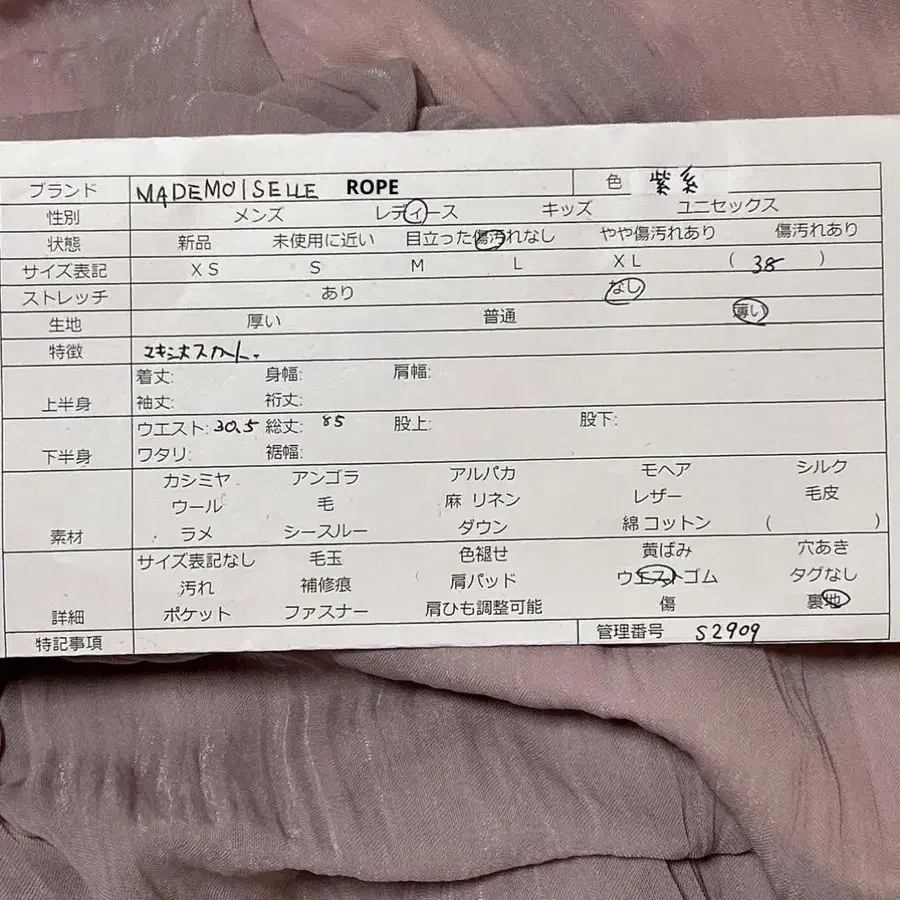 ブランド MADEMOISELLE ROPE 色 紫系
性別 メンズ レディース キッズ ユニセックス
状態 新品 未使用に近い 目立った傷汚れなし やや傷汚れあり 傷汚れあり
サイズ表記 XS S M L XL ( 38 )
ストレッチ あり なし
生地 厚い 普通 薄い
特徴 マキシ丈スカート。
上半身 着丈: 身幅: 肩幅:
袖丈: 裄丈:
下半身 ウエスト: 30.5 総丈: 85 股上: 股下:
ワタリ: 裾幅:
素材 カシミヤ アンゴラ アルパカ モヘア シルク
ウール 毛 麻 リネン レザー 毛皮
ラメ シースルー ダウン 綿 コットン ( )
詳細 サイズ表記なし 毛玉 色褪せ 黄ばみ 穴あき
汚れ 補修痕 肩パッド ウエストゴム タグなし
ポケット ファスナー 肩ひも調整可能 傷 裏地
特記事項 管理番号 S2909